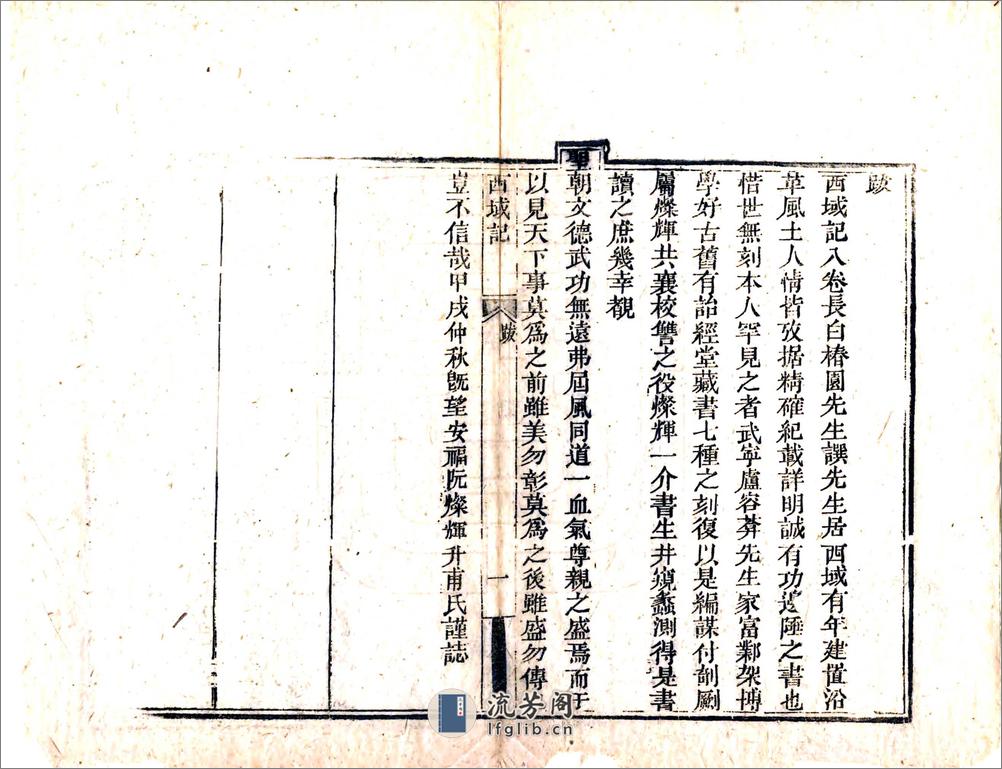 跋
西域記八卷長白椿園先生譔先生居西域有年建置沿
革風土人情皆攷据精確紀載詳明誠有功邊陲之書也
惜世無刻本人罕見之者武寧盧容葊先生家富鄴架博
學好古舊有詒經堂藏書七種之刻復以是編謀付剞劂
屬燦輝共襄校讐之役燦輝一介書生井窺蠡測得是書
讀之庶幾幸覩
聖朝文德武功無遠弗屆風同道一血氣尊親之盛焉而于
以見天下事莫爲之前雖美勿彰莫爲之後雖盛勿傳
西域記
跋
一
豈不信哉甲戌仲秋旣望安福阮燦輝升甫氏謹誌
流芳阁
lfglib.cn